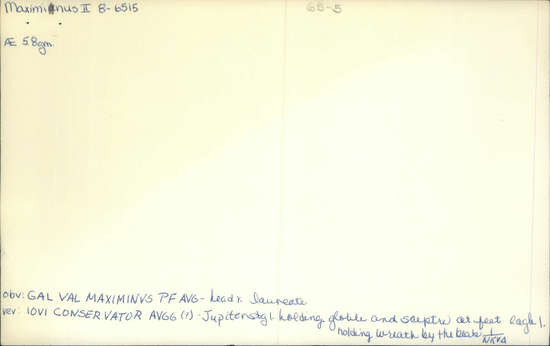 Maximinus II 8-6515
65-5
Æ 5.8gm.
obv: GAL VAL MAXIMINVS PF AVG - head r. laureate
rev: IOVI CONSERVATOR AVGG (1) - Jupiter stg l. holding globe and sceptre at feet eagle l.
holding wreath by the beak